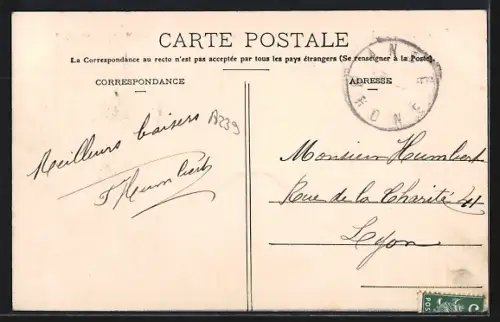 CARTE POSTALE
La Correspondance au recto n'est pas acceptée par tous les pays étrangers (Se renseigner à la Poste).
CORRESPONDANCE
ADRESSE
RHONE
A239
Meilleurs baisers
Humbert
Monsieur Humbert
Rue de la Charité 41
Lyon
5
POS